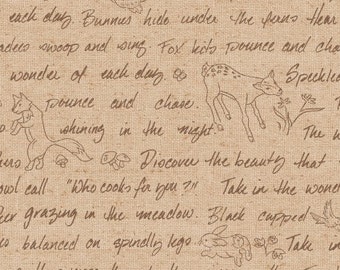 each day. Bunnies hide under the ferns. Hear
swoop and sing. Fox kits pounce and cha
wonder of each day. Speckled
pounce and chase.
shining in the night. The
Discover the beauty that
owl call, "Who cooks for you?!" Take in the wond
grazing in the meadow. Black capped
balanced on spindly legs. Take in